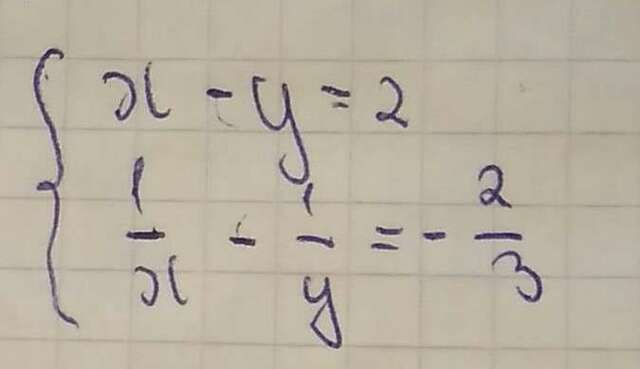 x - y = 2
1/x - 1/y = - 2/3